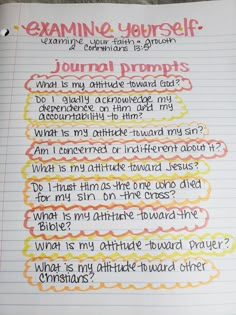 •EXAMINE YOURSELF•
examine your faith + growth
2 Corinthians 13:5
journal prompts
What is my attitude toward God?
Do I gladly acknowledge my
dependence on Him and my
accountability to Him?
What is my attitude toward my sin?
Am I concerned or indifferent about it?
What is my attitude toward Jesus?
Do I trust Him as the one who died
for my sin on the cross?
What is my attitude toward the
Bible?
What is my attitude toward prayer?
What is my attitude toward other
Christians?